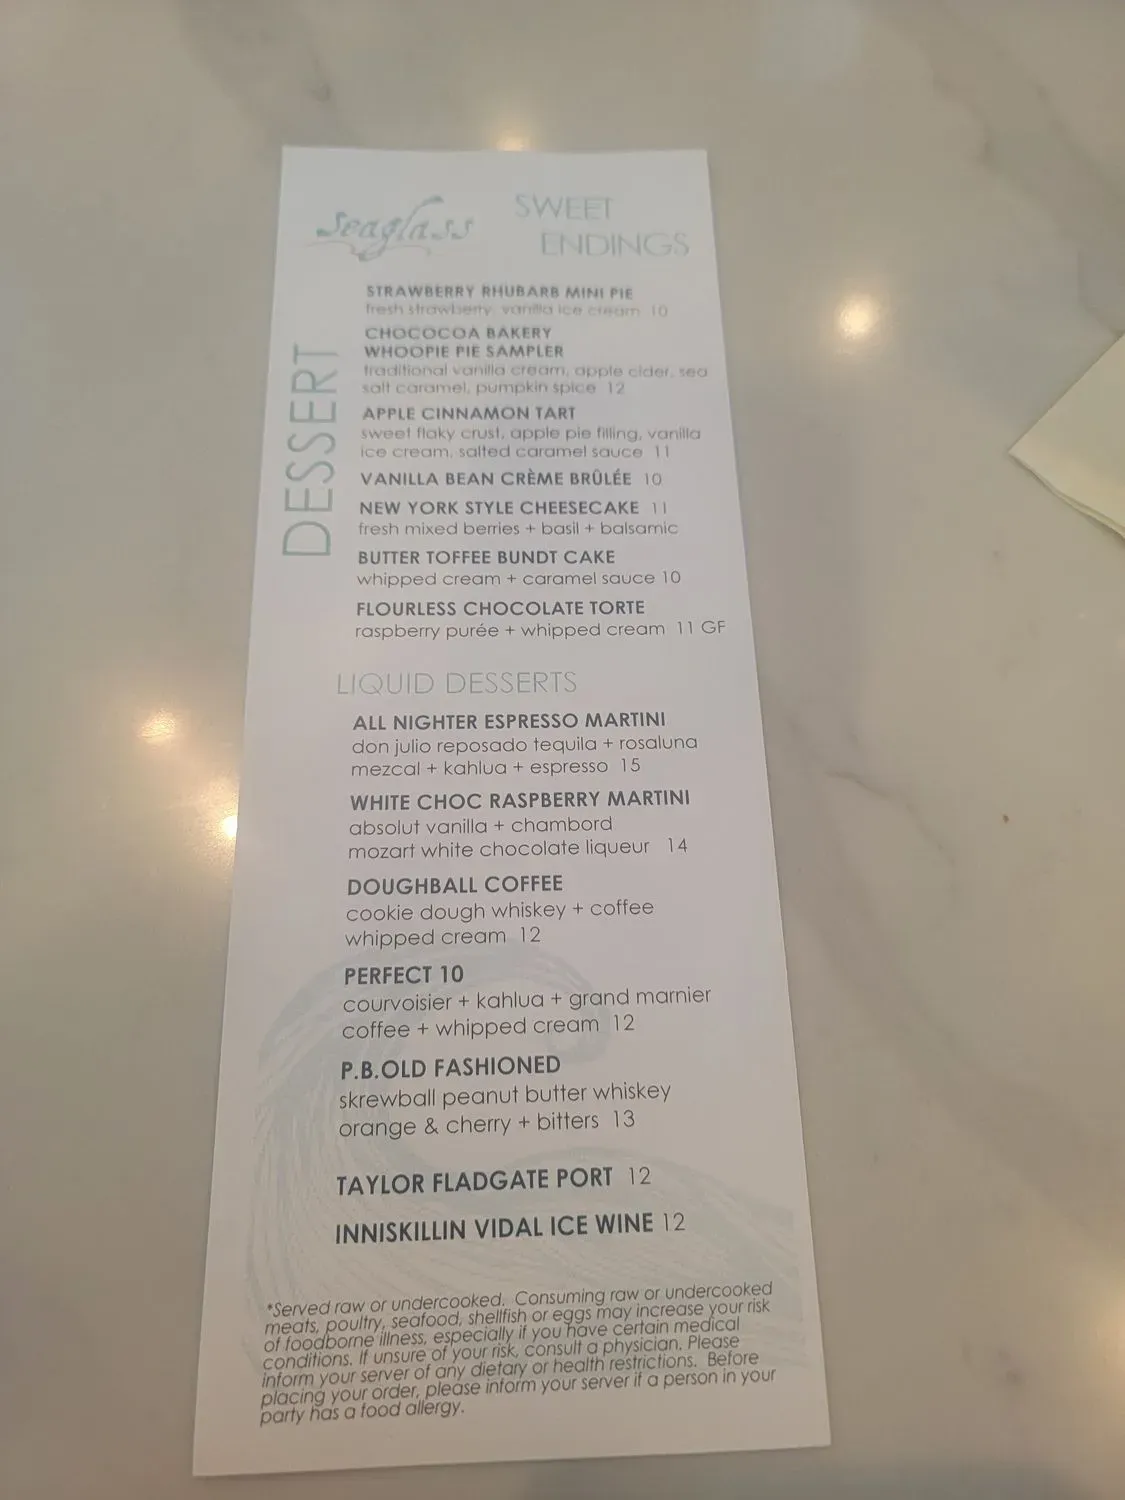 Seaglass
SWEET
ENDINGS
DESSERT
STRAWBERRY RHUBARB MINI PIE
fresh strawberry, vanilla ice cream 10
CHOCOCOA BAKERY
WHOOPIE PIE SAMPLER
traditional vanilla cream, apple cider, sea
salt caramel, pumpkin spice 12
APPLE CINNAMON TART
sweet flaky crust, apple pie filling, vanilla
ice cream, salted caramel sauce 11
VANILLA BEAN CRÈME BRÛLÉE 10
NEW YORK STYLE CHEESECAKE 11
fresh mixed berries + basil + balsamic
BUTTER TOFFEE BUNDT CAKE
whipped cream + caramel sauce 10
FLOURLESS CHOCOLATE TORTE
raspberry purée + whipped cream 11 GF
LIQUID DESSERTS
ALL NIGHTER ESPRESSO MARTINI
don julio reposado tequila + rosaluna
mezcal + kahlua + espresso 15
WHITE CHOC RASPBERRY MARTINI
absolut vanilla + chambord
mozart white chocolate liqueur 14
DOUGHBALL COFFEE
cookie dough whiskey + coffee
whipped cream 12
PERFECT 10
courvoisier + kahlua + grand marnier
coffee + whipped cream 12
P.B.OLD FASHIONED
skrewball peanut butter whiskey
orange & cherry + bitters 13
TAYLOR FLADGATE PORT 12
INNISKILLIN VIDAL ICE WINE 12
*Served raw or undercooked. Consuming raw or undercooked
meats, poultry, seafood, shellfish or eggs may increase your risk
of foodborne illness, especially if you have certain medical
conditions. If unsure of your risk, consult a physician. Please
inform your server of any dietary or health restrictions. Before
placing your order, please inform your server if a person in your
party has a food allergy.